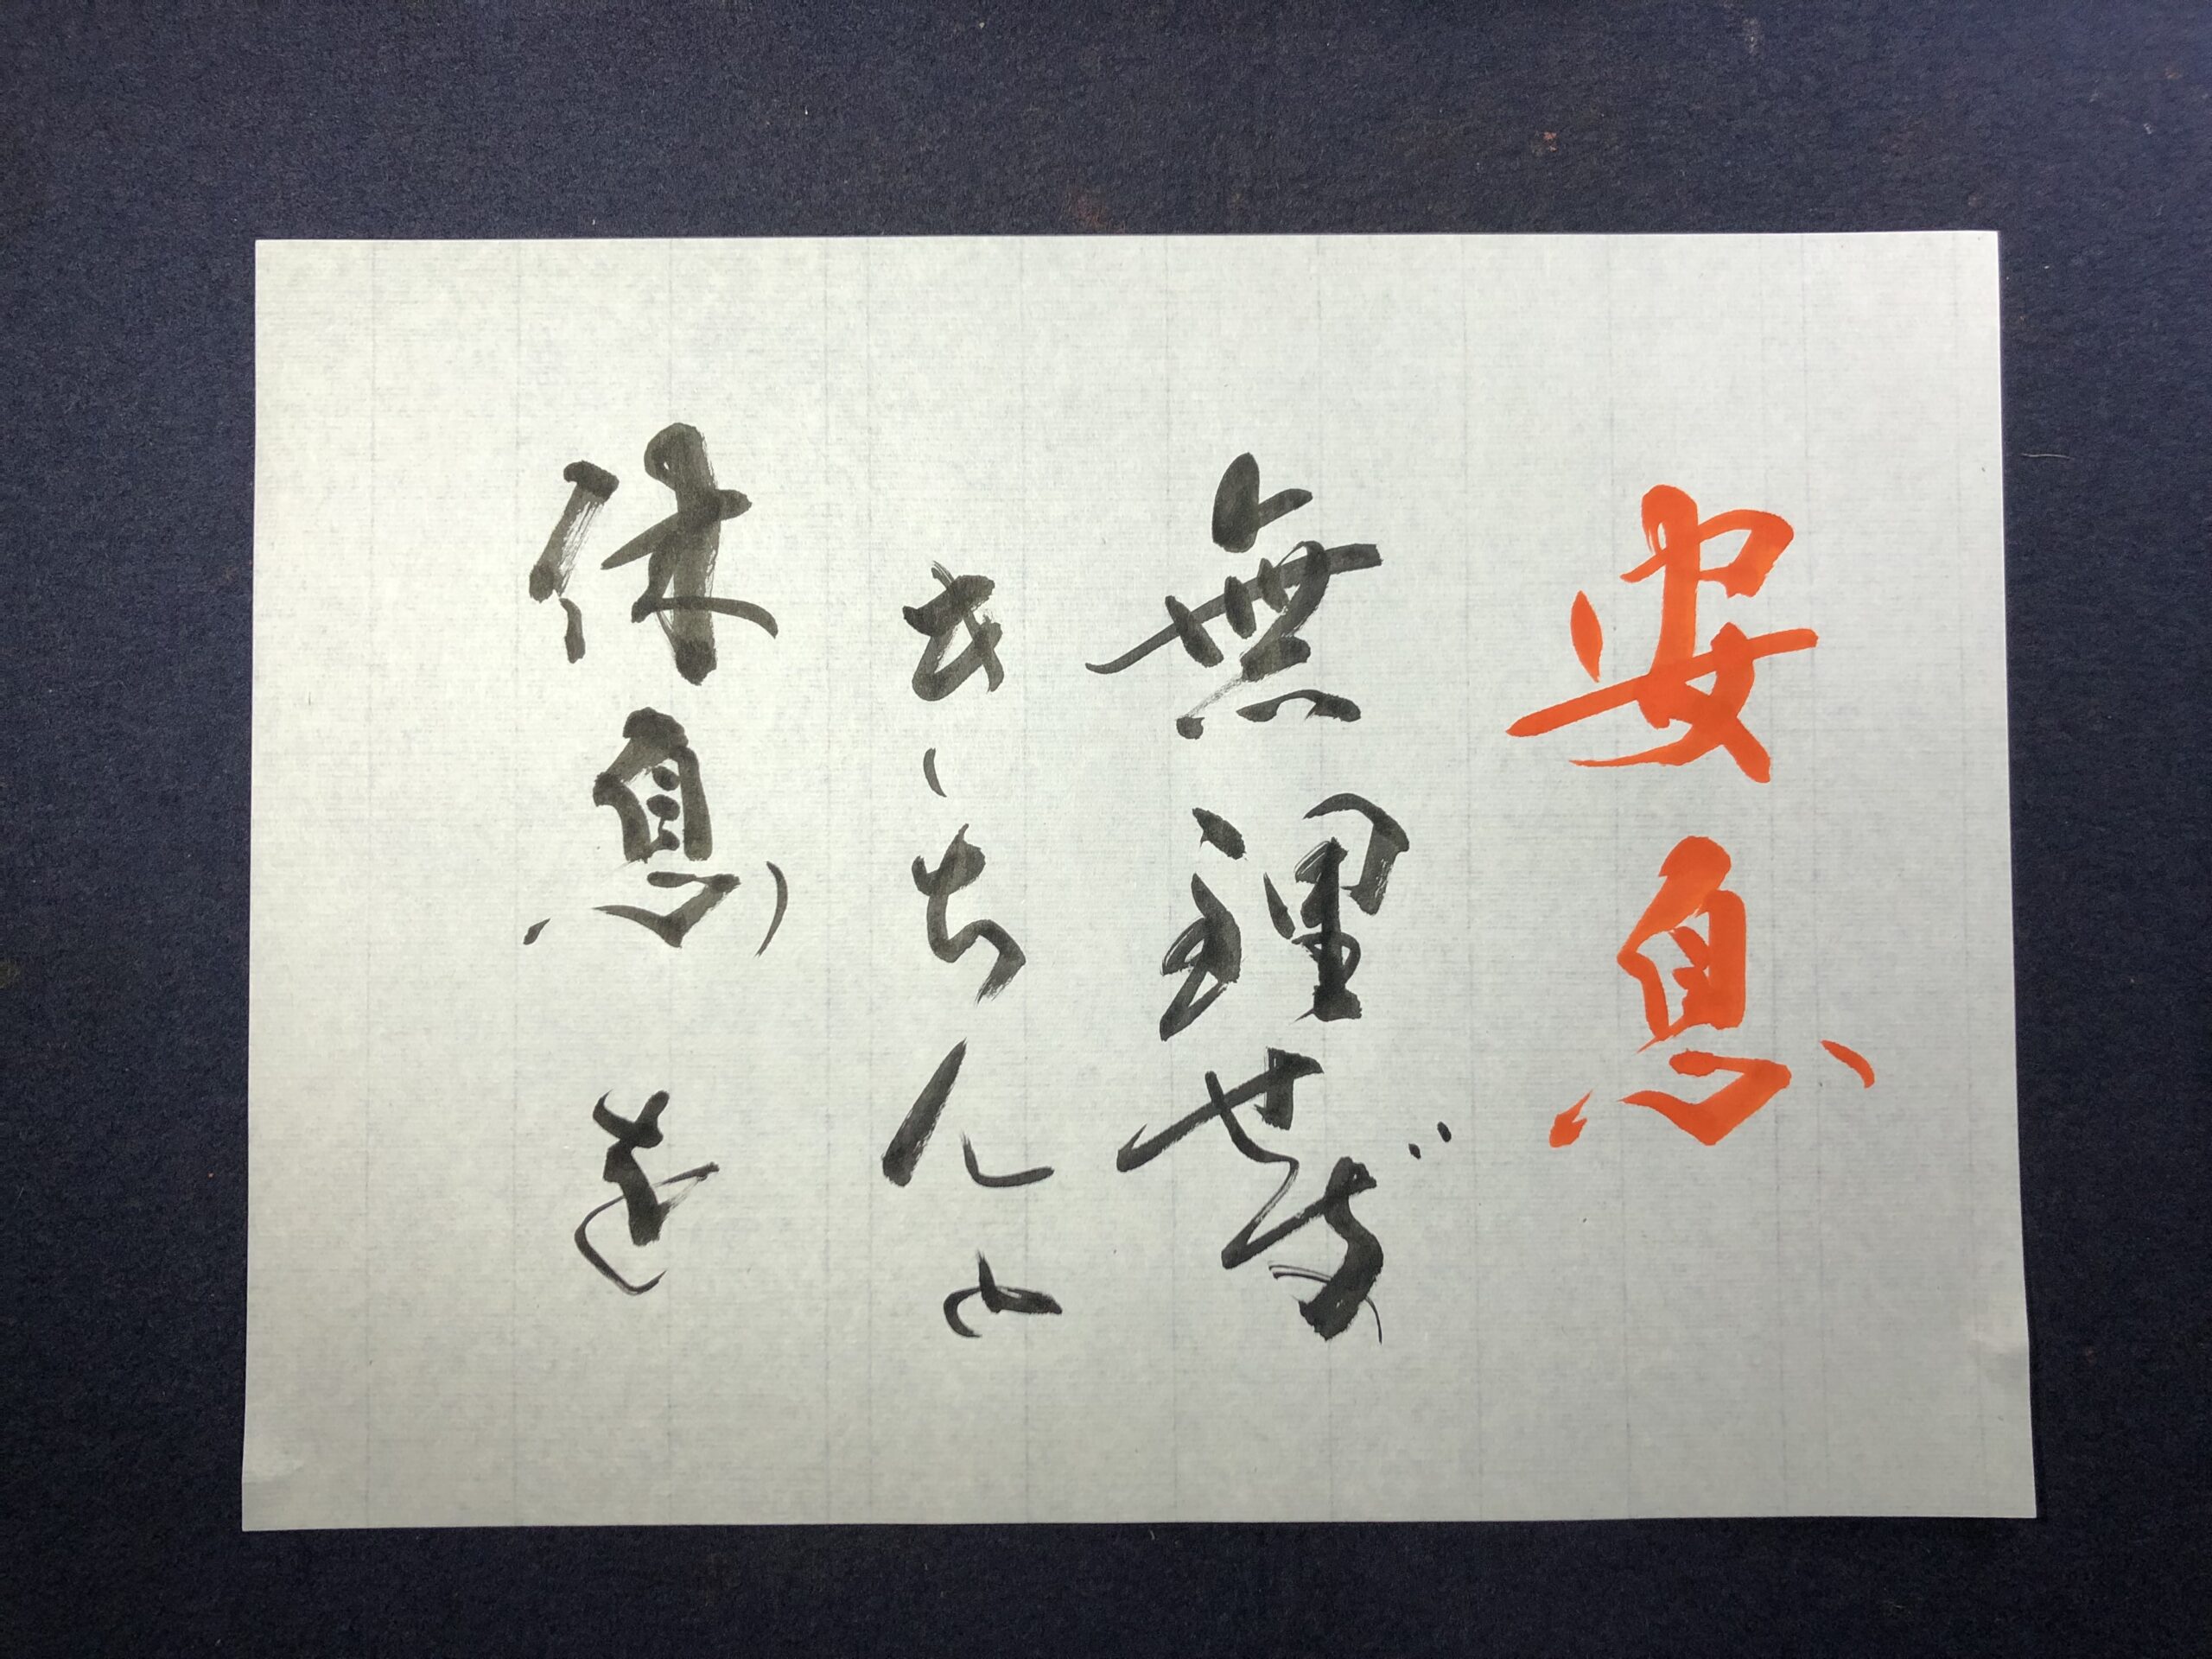 安息
無理せず
きちんと
休息を